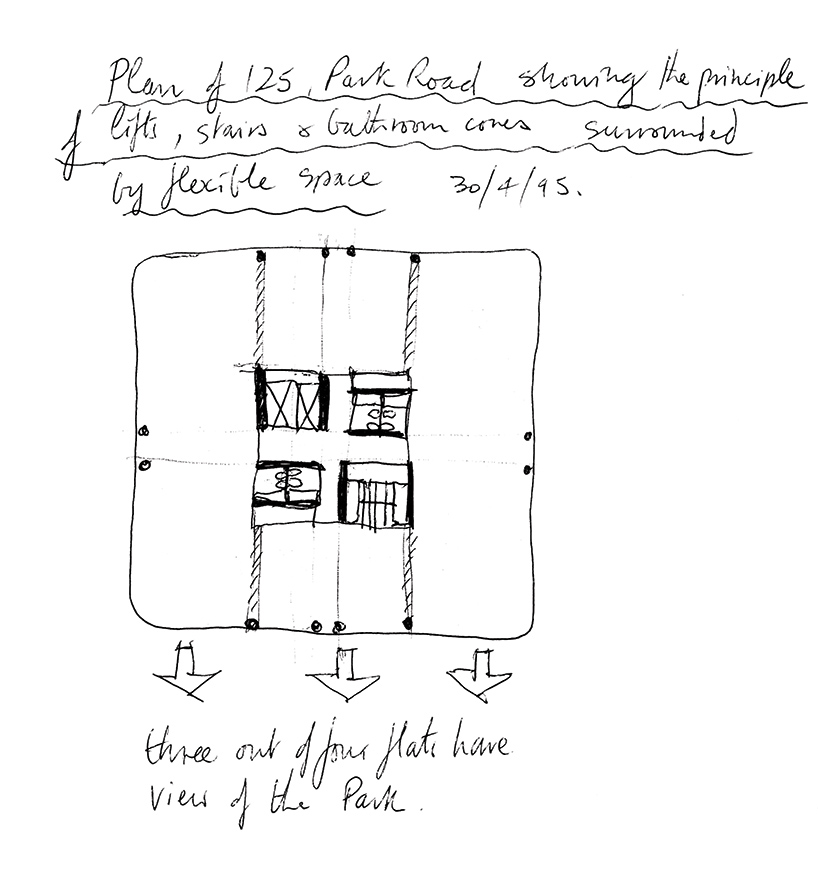 Plan of 125, Park Road showing the principle
of lifts, stairs & bathroom cores surrounded
by flexible space 30/4/95.
three out of four flats have
view of the Park.